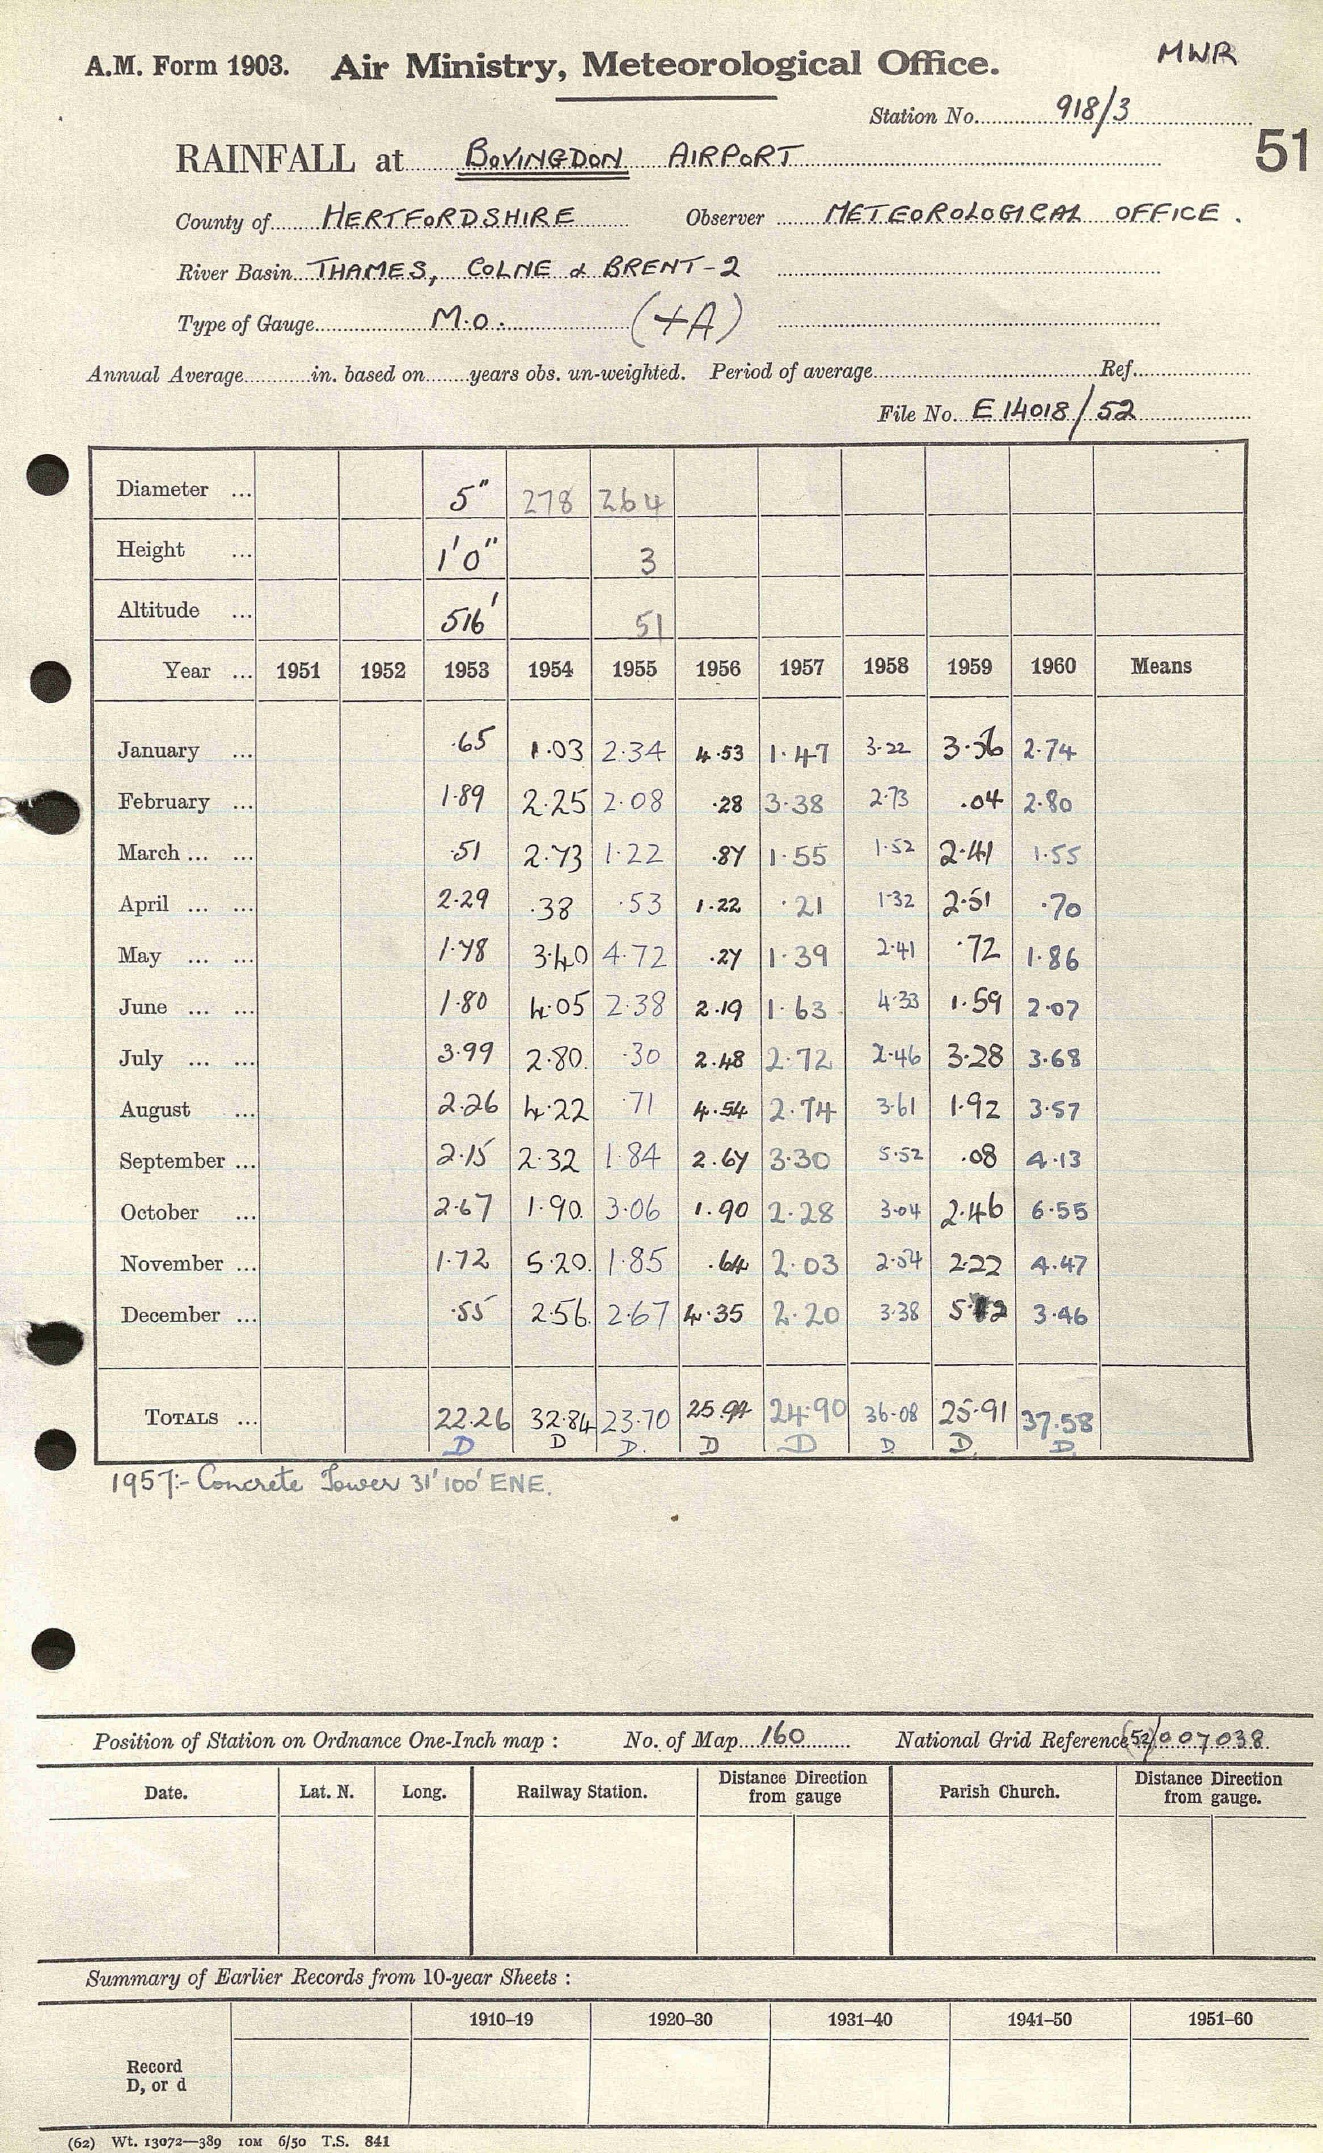 MWR
A.M. Form 1903. Air Ministry, Meteorological Office.
Station No. 918/3
RAINFALL at BOVINGDON AIRPORT 51
County of HERTFORDSHIRE Observer METEOROLOGICAL OFFICE.
River Basin THAMES, COLNE & BRENT-2
Type of Gauge M.O. (+A)
Annual Average in. based on years obs. un-weighted. Period of average Ref.
File No. E 14018/52
Diameter ... 5" 278 264
Height ... 1'0" 3
Altitude ... 516' 51
Year ... 1951 1952 1953 1954 1955 1956 1957 1958 1959 1960 Means
January ... .65 1.03 2.34 4.53 1.47 3.22 3.56 2.74
February ... 1.89 2.25 2.08 .28 3.38 2.73 .04 2.80
March ... ... .51 2.73 1.22 .87 1.55 1.52 2.41 1.55
April ... ... 2.29 .38 .53 1.22 .21 1.32 2.51 .70
May ... ... 1.78 3.40 4.72 .27 1.39 2.41 .72 1.86
June ... ... 1.80 4.05 2.38 2.19 1.63 4.33 1.59 2.07
July ... ... 3.99 2.80 .30 2.48 2.72 2.46 3.28 3.68
August ... 2.26 4.22 .71 4.54 2.74 3.61 1.92 3.57
September ... 2.15 2.32 1.84 2.67 3.30 5.52 .08 4.13
October ... 2.67 1.90 3.06 1.90 2.28 3.04 2.46 6.55
November ... 1.72 5.20 1.85 .64 2.03 2.54 2.22 4.47
December ... .55 2.56 2.67 4.35 2.20 3.38 5.12 3.46
TOTALS ... 22.26 32.84 23.70 25.94 24.90 36.08 25.91 37.58
D D D. D D D D. D.
1957:- Concrete Tower 31' 100' ENE.
Position of Station on Ordnance One-Inch map : No. of Map 160 National Grid Reference (52)/007038
Date. Lat. N. Long. Railway Station. Distance Direction from gauge Parish Church. Distance Direction from gauge.
Summary of Earlier Records from 10-year Sheets :
1910–19 1920–30 1931–40 1941–50 1951–60
Record
D, or d
(62) Wt. 13072—389 10M 6/50 T.S. 841